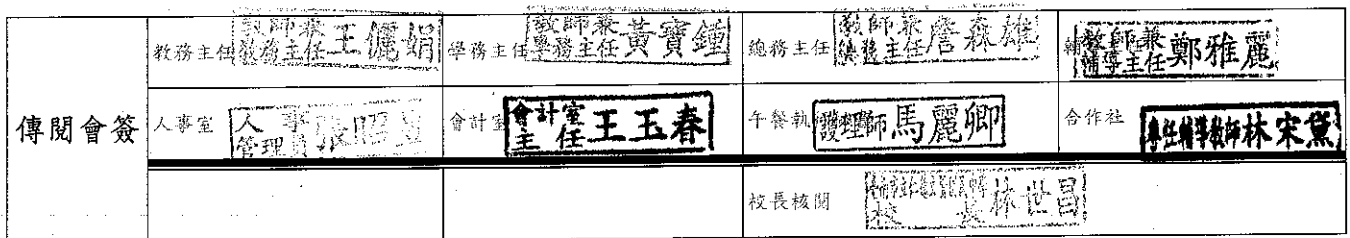 傳閱會簽
教務主任 教師兼教務主任 王儷娟
學務主任 教師兼學務主任 黃寶鍾
總務主任 教師兼總務主任 詹森雄
輔導主任 教師兼輔導主任 鄭雅麗
人事室 人事管理員 張昭
會計室 會計室主任 王玉春
午餐執 護理師 馬麗卿
合作社 專任輔導教師 林宋黛
校長核閱 校長 林世昌